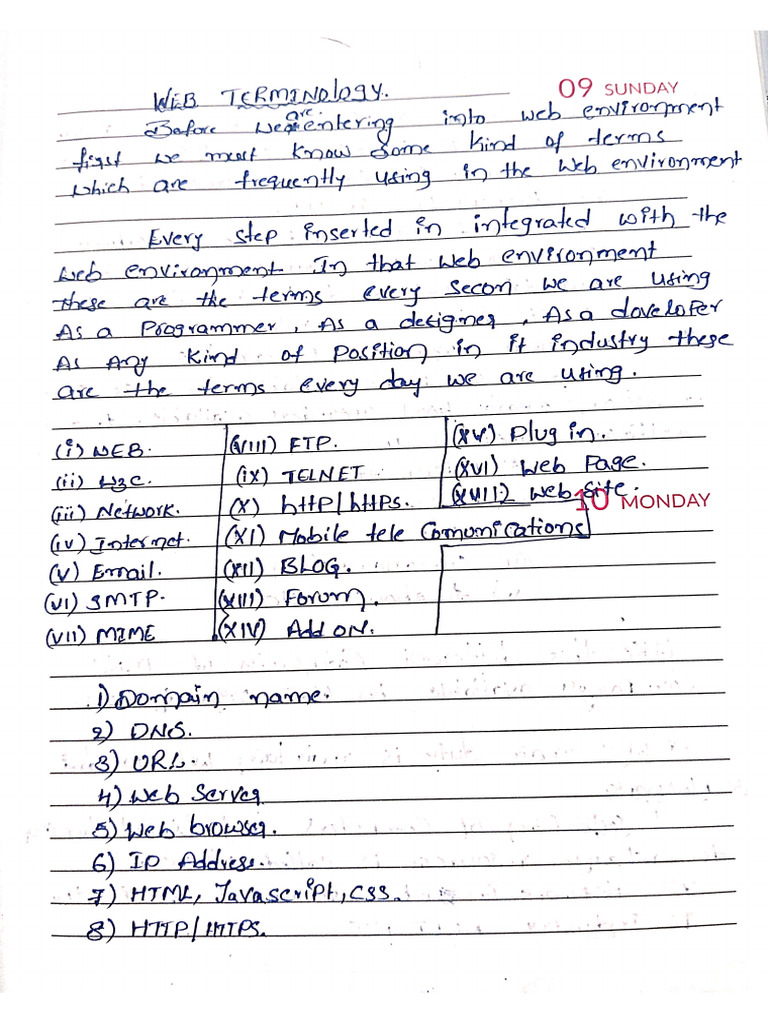 09 SUNDAY
WEB TERMINOLOGY.
Before we are entering into web environment
first we must know some kind of terms
which are frequently using in the web environment
Every step inserted in integrated with the
web environment In that web environment
these are the terms every secon we are using
As a Programmer, As a designer, As a developer
As Any kind of Position in it industry these
are the terms every day we are using.
(i) WEB.
(ii) W3C.
(iii) Network.
(iv) Internet.
(v) Email.
(VI) SMTP.
(VII) MIME
(VIII) FTP.
(ix) TELNET
(X) http/https.
(XI) Mobile tele Comunications
(XII) BLOG.
(XIII) Forum.
(XIV) Add ON.
(XV) Plug in.
(XVI) Web Page.
(XVII) Web Site.
10 MONDAY
1) Domain name.
2) DNS.
3) URL.
4) Web Server
5) Web browser.
6) IP Address.
7) HTML, Javascript, CSS.
8) HTTP/HTTPS.